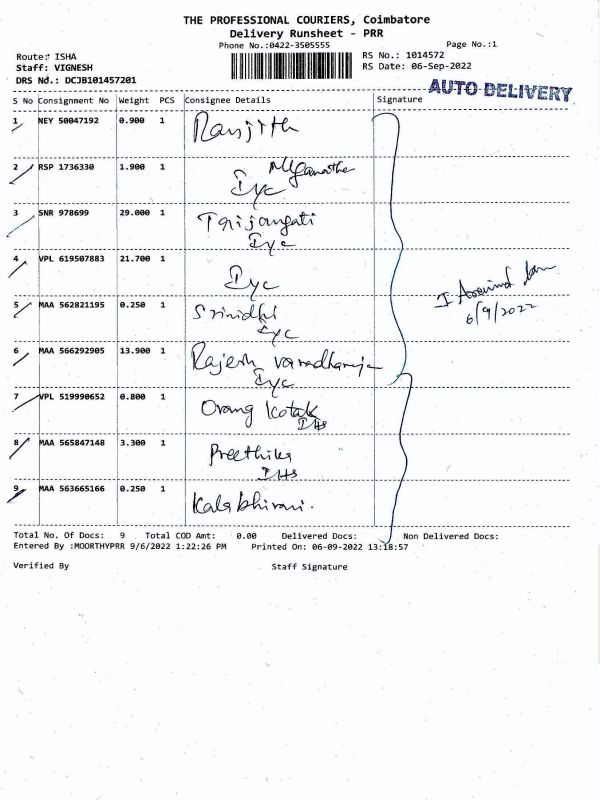 THE PROFESSIONAL COURIERS, Coimbatore
Delivery Runsheet - PRR
Phone No.:0422-3505555
Page No.:1
Route: ISHA
Staff: VIGNESH
DRS No.: DCJB101457201
RS No.: 1014572
RS Date: 06-Sep-2022
AUTO DELIVERY
S No Consignment No Weight PCS Consignee Details Signature
1 NEY 50047192 0.900 1 Ranjith
2 RSP 1736330 1.900 1
Iyc
3 SNR 978699 29.000 1
Iyc
4 VPL 619507883 21.700 1 Iyc
I
6/9/2022
5 MAA 562821195 0.250 1 Srinidhi
Iyc
6 MAA 566292905 13.900 1 Rajesh varadharaja
Iyc
7 VPL 519990652 0.800 1 Orang Kotak
IHS
8 MAA 565847148 3.300 1 Preethika
IHS
9 MAA 563665166 0.250 1 Kalabhirani.
Total No. Of Docs: 9 Total COD Amt: 0.00 Delivered Docs: Non Delivered Docs:
Entered By :MOORTHYPRR 9/6/2022 1:22:26 PM Printed On: 06-09-2022 13:18:57
Verified By Staff Signature